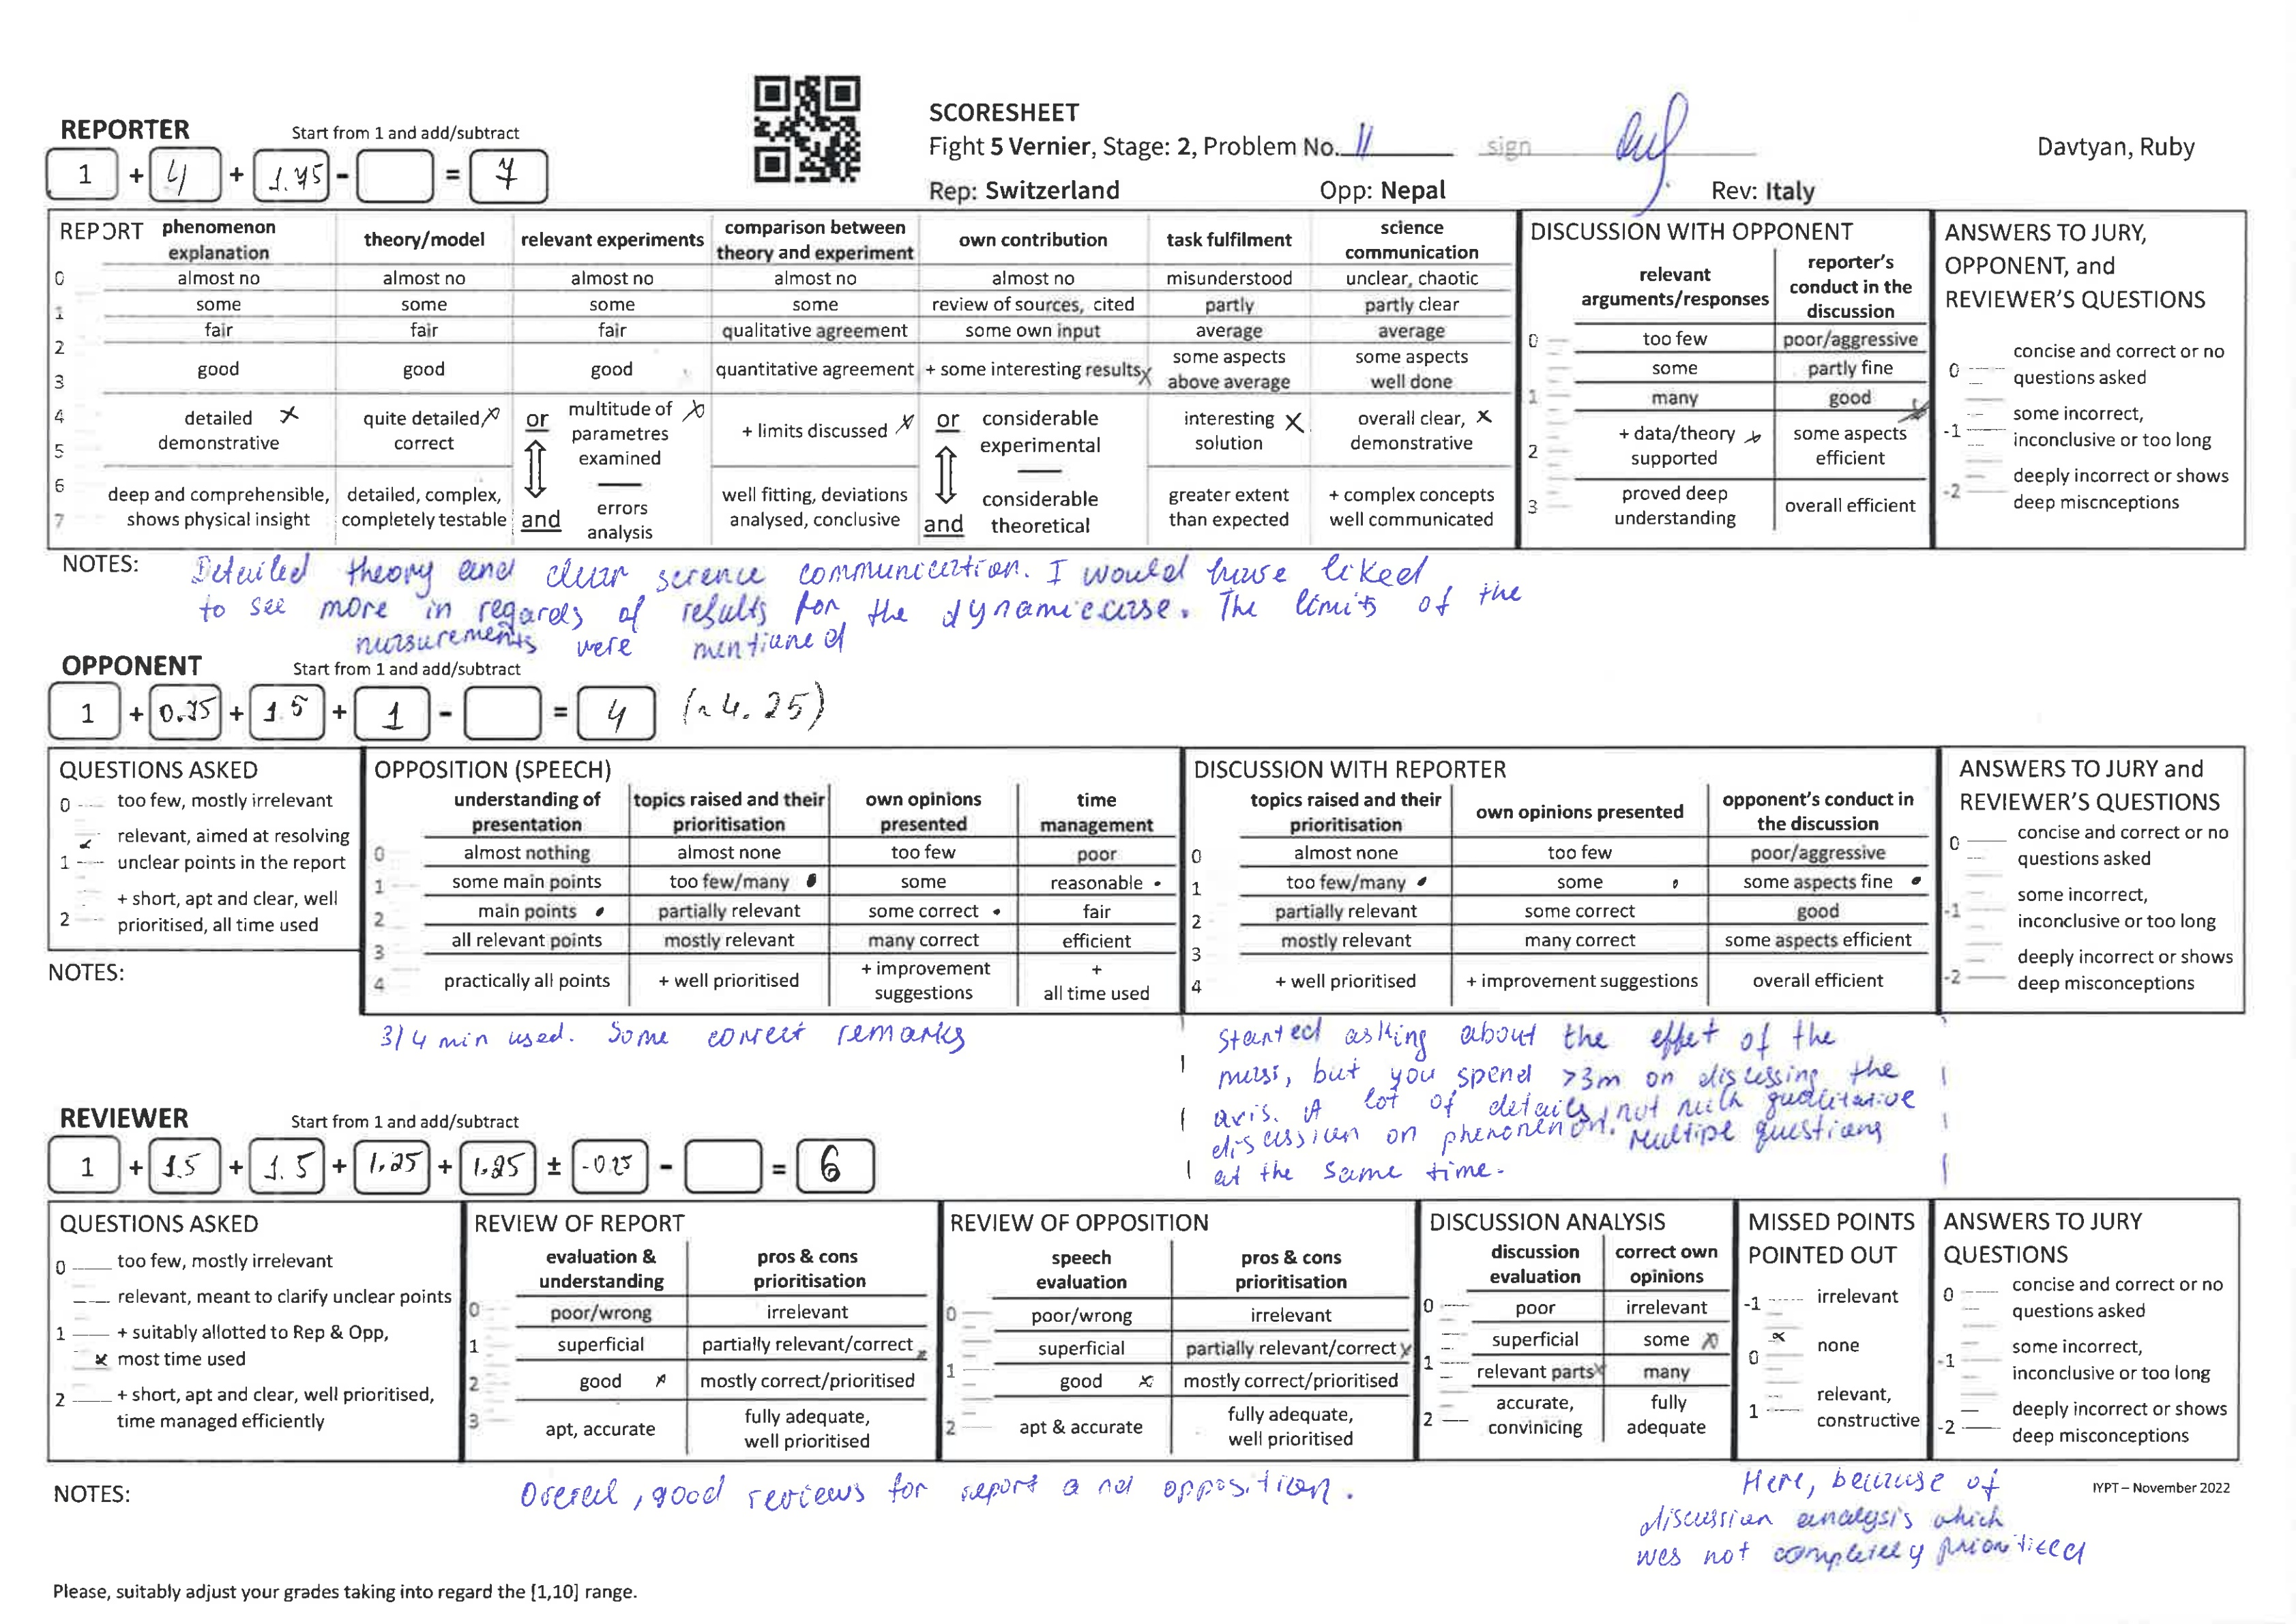 SCORESHEET
REPORTER Start from 1 and add/subtract
Fight 5 Vernier, Stage: 2, Problem No. 11 sign
Davtyan, Ruby
1 + 4 + 1.75 - = 7
Rep: Switzerland Opp: Nepal Rev: Italy
REPORT
phenomenon explanation theory/model relevant experiments comparison between theory and experiment own contribution task fulfilment science communication
0 almost no almost no almost no almost no almost no misunderstood unclear, chaotic
1 some some some some review of sources, cited partly partly clear
fair fair fair qualitative agreement some own input average average
2
3 good good good quantitative agreement + some interesting results x some aspects above average some aspects well done
4 detailed demonstrative x quite detailed, correct x or multitude of parametres examined x + limits discussed x or considerable experimental interesting solution x overall clear, demonstrative x
5
6
7 deep and comprehensible, shows physical insight detailed, complex, completely testable and errors analysis well fitting, deviations analysed, conclusive and considerable theoretical greater extent than expected + complex concepts well communicated
DISCUSSION WITH OPPONENT
relevant arguments/responses reporter's conduct in the discussion
0 too few poor/aggressive
some partly fine
1 many good
2 + data/theory supported some aspects efficient
3 proved deep understanding overall efficient
ANSWERS TO JURY,
OPPONENT, and
REVIEWER'S QUESTIONS
0 concise and correct or no
questions asked
some incorrect,
-1 inconclusive or too long
deeply incorrect or shows
-2 deep miscnceptions
NOTES: Detailed theory and clear science communication. I would have liked
to see more in regards of results for the dynamic case. The limits of the
mersurements were mentioned
OPPONENT Start from 1 and add/subtract
1 + 0.75 + 1.5 + 1 - = 4 (~4.25)
QUESTIONS ASKED
0 too few, mostly irrelevant
relevant, aimed at resolving
1 unclear points in the report
+ short, apt and clear, well
2 prioritised, all time used
OPPOSITION (SPEECH)
understanding of presentation topics raised and their prioritisation own opinions presented time management
0 almost nothing almost none too few poor
1 some main points too few/many some reasonable
2 main points partially relevant some correct fair
3 all relevant points mostly relevant many correct efficient
4 practically all points + well prioritised + improvement suggestions + all time used
DISCUSSION WITH REPORTER
topics raised and their prioritisation own opinions presented opponent's conduct in the discussion
0 almost none too few poor/aggressive
1 too few/many some some aspects fine
2 partially relevant some correct good
3 mostly relevant many correct some aspects efficient
4 + well prioritised + improvement suggestions overall efficient
ANSWERS TO JURY and
REVIEWER'S QUESTIONS
0 concise and correct or no
questions asked
some incorrect,
-1 inconclusive or too long
deeply incorrect or shows
-2 deep misconceptions
NOTES:
3/4 min used. Some correct remarks
Started asking about the effet of the
mass, but you spend >3m on discussing the
axis. A lot of details, not much qualitative
discussion on phenomenon. Multiple questions
at the same time.
REVIEWER Start from 1 and add/subtract
1 + 1.5 + 1.5 + 1.25 + 1.25 ± -0.25 - = 6
QUESTIONS ASKED
0 too few, mostly irrelevant
relevant, meant to clarify unclear points
1 + suitably allotted to Rep & Opp,
x most time used
2 + short, apt and clear, well prioritised,
time managed efficiently
REVIEW OF REPORT
evaluation & understanding pros & cons prioritisation
0 poor/wrong irrelevant
1 superficial partially relevant/correct x
2 good x mostly correct/prioritised
3 apt, accurate fully adequate, well prioritised
REVIEW OF OPPOSITION
speech evaluation pros & cons prioritisation
0 poor/wrong irrelevant
superficial partially relevant/correct x
1 good x mostly correct/prioritised
2 apt & accurate fully adequate, well prioritised
DISCUSSION ANALYSIS
discussion evaluation correct own opinions
0 poor irrelevant
superficial some x
1 relevant parts x many
2 accurate, convinicing fully adequate
MISSED POINTS
POINTED OUT
-1 irrelevant
x none
0
relevant,
1 constructive
ANSWERS TO JURY
QUESTIONS
0 concise and correct or no
questions asked
some incorrect,
-1 inconclusive or too long
deeply incorrect or shows
-2 deep misconceptions
NOTES: Overall, good reviews for report and opposition.
Here, because of
discussion analysis which
wes not completely prioritised
IYPT – November 2022
Please, suitably adjust your grades taking into regard the [1,10] range.